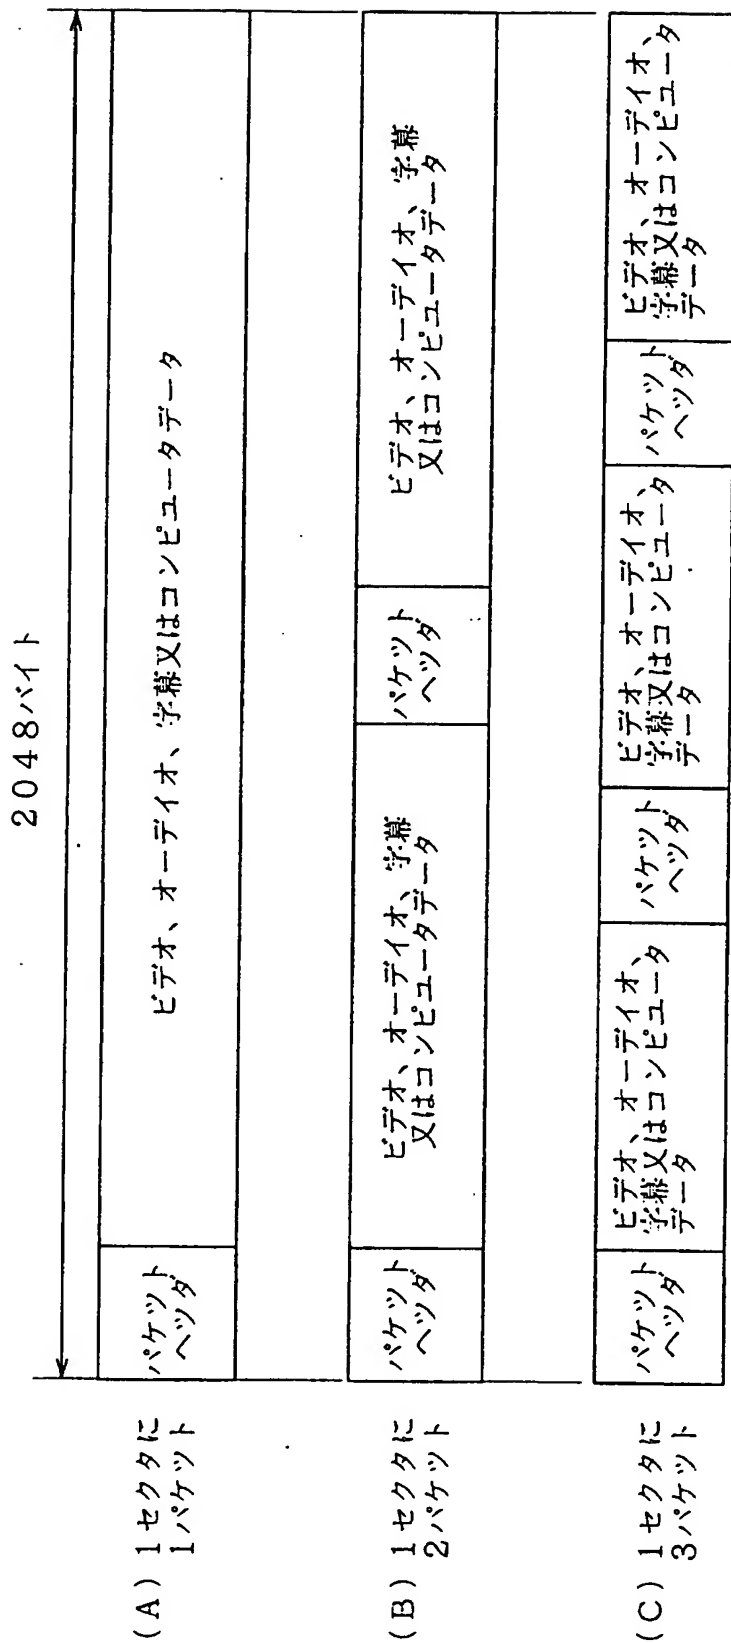 2048バイト
(A) 1セクタに
1パケット
パケット
ヘツダ
ビデオ、オーデイオ、字幕又はコンピュータデータ
(B) 1セクタに
2パケット
パケット
ヘツダ
ビデオ、オーデイオ、字幕
又はコンピュータデータ
パケット
ヘツダ
ビデオ、オーデイオ、字幕
又はコンピュータデータ
(C) 1セクタに
3パケット
パケット
ヘツダ
ビデオ、オーデイオ、
字幕又はコンピュータ
データ
パケット
ヘツダ
ビデオ、オーデイオ、
字幕又はコンピュータ
データ
パケット
ヘツダ
ビデオ、オーデイオ、
字幕又はコンピュータ
データ